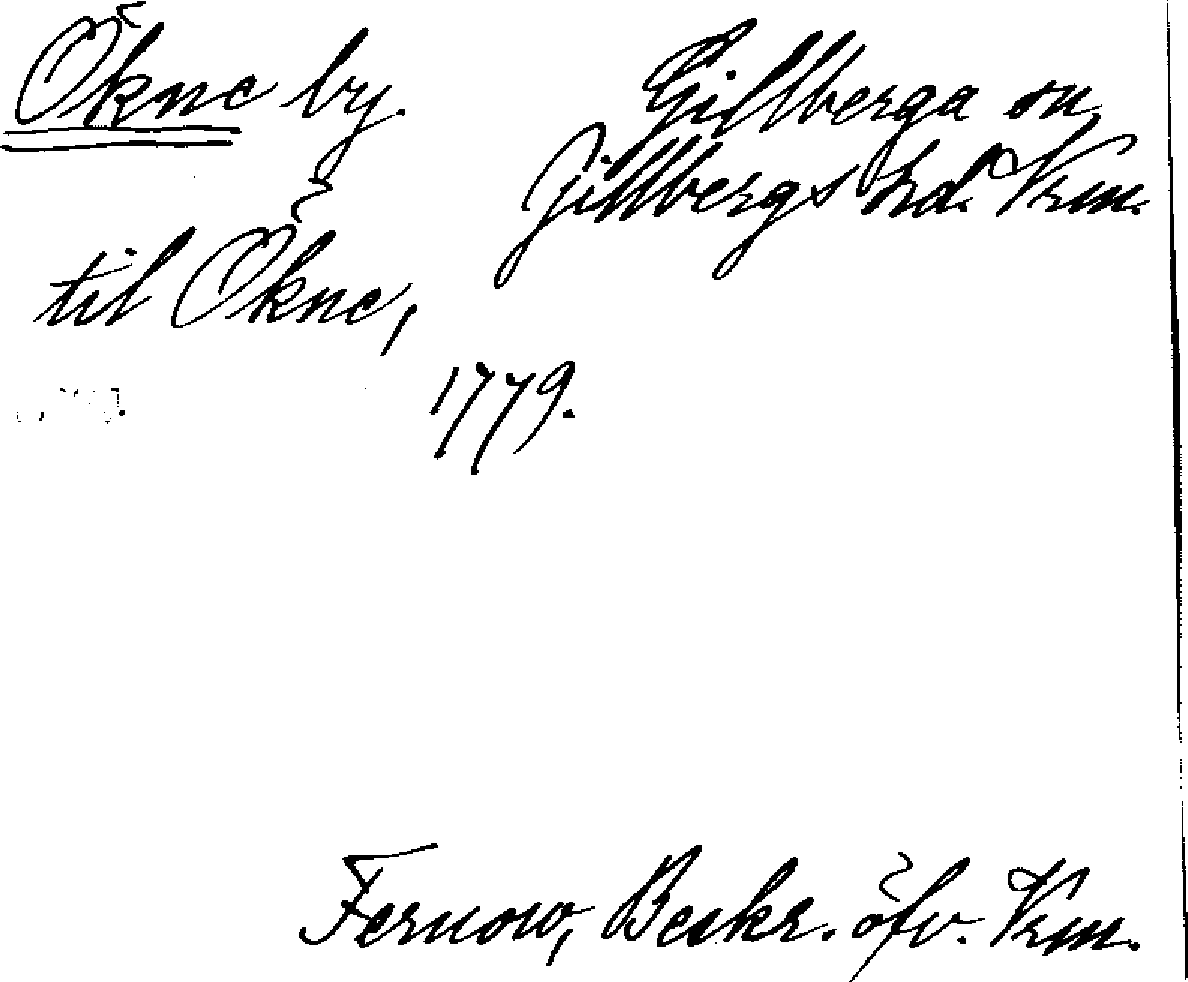 Ökne by.
Gillberga sn,
Gillbergs hd. Vrm.
til Ökne,
1779.
Fernow, Beskr. öfv. Vrm.